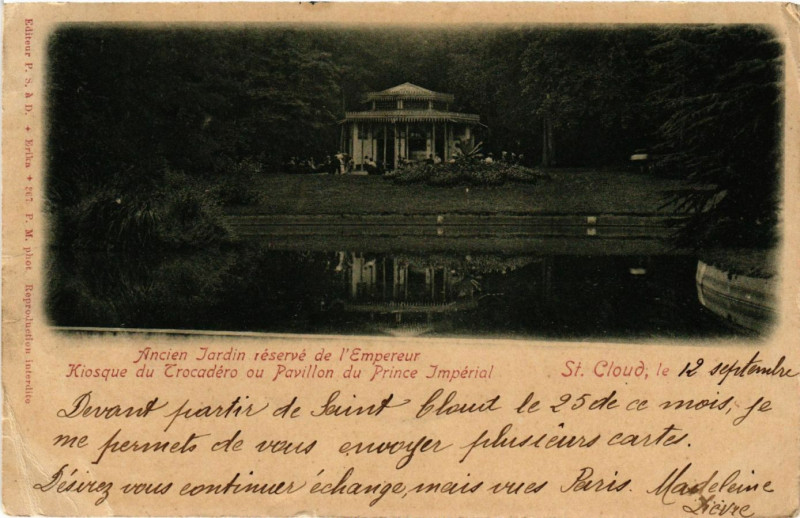 Editeur P. S. à D. ✦ Erika ✦ 207 P. M. phot. Reproduction interdite
Ancien Jardin réservé de l'Empereur
Kiosque du Trocadéro ou Pavillon du Prince Impérial
St. Cloud, le 12 septembre
Devant partir de Saint Cloud le 25 de ce mois, je
me permets de vous envoyer plusieurs cartes.
Désirez vous continuer échange, mais vues Paris. Madeleine